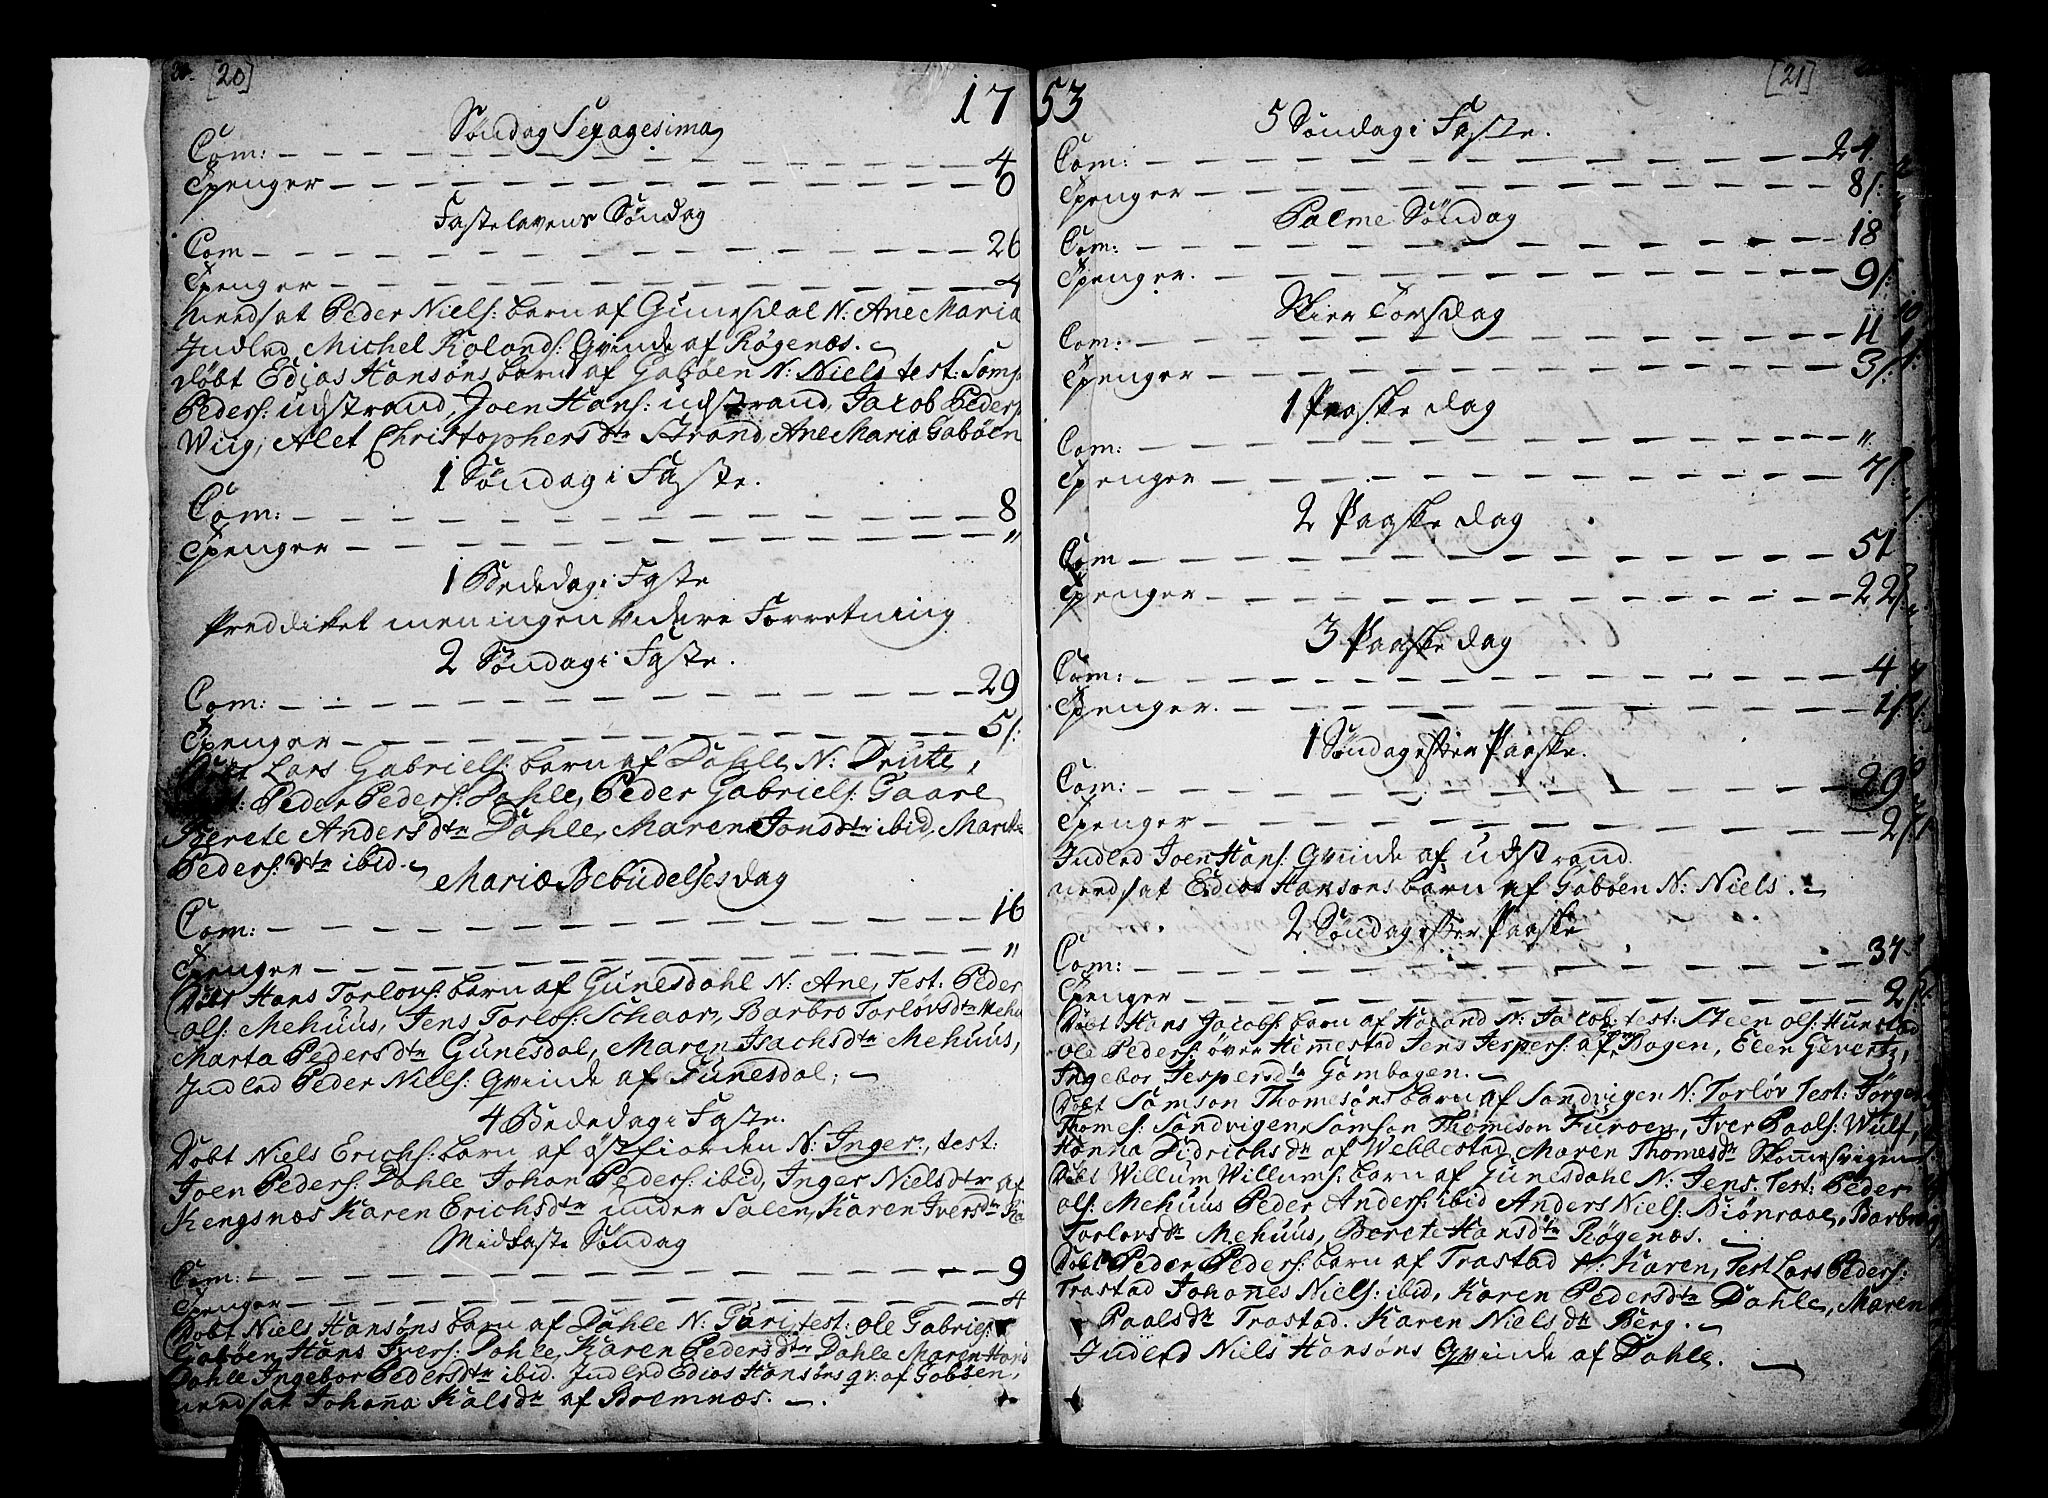 [20]
1753
Søndag Sexagesima
Com: 4
Tpenger 6
Fastelavens Søndag
Com 26
Tpenger 4
nedsat Peder Niels: barn af Gunesdal N: Ane Maria
Indled Michel Rolands: Qvinde af Røgenæs.
døbt Edias Hansøns barn af Gabøen N: Niels test:
Peders: udstrand, Joen Hans: udstrand, Jacob Peders
Wiig, Alet Christophersdtr Strand, Ane Maria Gabøen
1 Søndag i Faste.
Com: 8
Tpenger "
1 Bededag i Faste
Preddiket men ingen videre Forretning
2 Søndag i Faste.
Com: 29
Tpenger 5/:
Lars Gabriels: barn af Dahle N: Drute,
Peder Peders: Dahle, Peder Gabriels: Gaare
Berete Andersdtr Dahle, Maren Jonsdtr ibid, Marite
Peders: dtr ibid.
Mariæ Bebudelses dag
Com: 16
Tpenger "
Døbt Hans Torlovs: barn af Gunesdahl N: Ane, Test: Peder
ols: Mehuus, Jens Torlofs: Schaar, Barbro Torløvsdtr Mehu
Marta Pedersdtr Gunesdal, Maren Isachsdtr Mehuus,
Indled Peder Niels: Qvinde af Gunesdal;
4 Bededag i Faste.
Døbt Niels Erichs: barn af østfiorden N: Inger, test:
Joen Peders: Dahle Johan Peders: ibid, Inger Nielsdtr af
Kengsnæs Karen Erichsdtr under Salen, Karen Iversdtr
Midfaste Søndag
Com: 9
Tpenger 4
Døbt Niels Hansøns barn af Dahle N: Guri, test: ole Gabriels:
Gabøen, Hans Ivers: Dahle, Karen Pedersdtr Dahle Maren Hans
Dahle Ingebor Pedersdtr ibid. Indled Edias Hansøns qv: af Gabøen,
nedsat Johanna Kalsdtr af Bremnæs.
[21]
5 Søndag i Faste.
Com: 24
Tpenger 8/:
Palme Søndag
Com: 18
Tpenger. 9/:
Skier Torsdag
Com: 11
Tpenger 3/:
1 Paaske dag
Com: "
Tpenger 7/:
2 Paaske dag
Com 51
Tpenger 22/
3 Paaske dag
Com: 4
Tpenger. 1/
1 Søndag efter Paaske.
Com: 29
Tpenger 2/
Indled Joen Hans: Qvinde af udstrand.
nedsat Edias Hansøns barn af Gabøen N: Niels.
2 Søndag efter Paaske
Com: 37
Tpenger 2/
Døbt Hans Jacobs: barn af Haland N: Jacob, test: Steen ols: Hunstad
ole Peders: øver Himmestad Jens Jespers: af Bogen, Elen Gevertz,
Ingebor Jespersdtr Gambogen.
Døbt Samson Thomesøns barn af Sandvigen N: Torløv Test: Jørgen
Thomes: Sandvigen, Samson Thomeson Furoen, Iver Paals: Wulf,
Hanna Didrichsdtr af Webbestad, Maren Thomesdtr
Døbt Willum Willums: barn af Gunesdahl N: Jens, Test: Peder
ols: Mehuus Peder Anders: ibid Anders Niels: Biønraae, Barbro
Torlovsdtr Mehuus, Berete Hansdtr Røgenæs.
Døbt Peder Peders: barn af Trastad N: Karen, Test Lars Peders:
Trastad Johannes Niels: ibid, Karen Pedersdtr Dahle, Maren
Paalsdtr Trastad. Karen Nielsdtr Berg.
Indled Niels Hansøns Qvinde af Dahle.